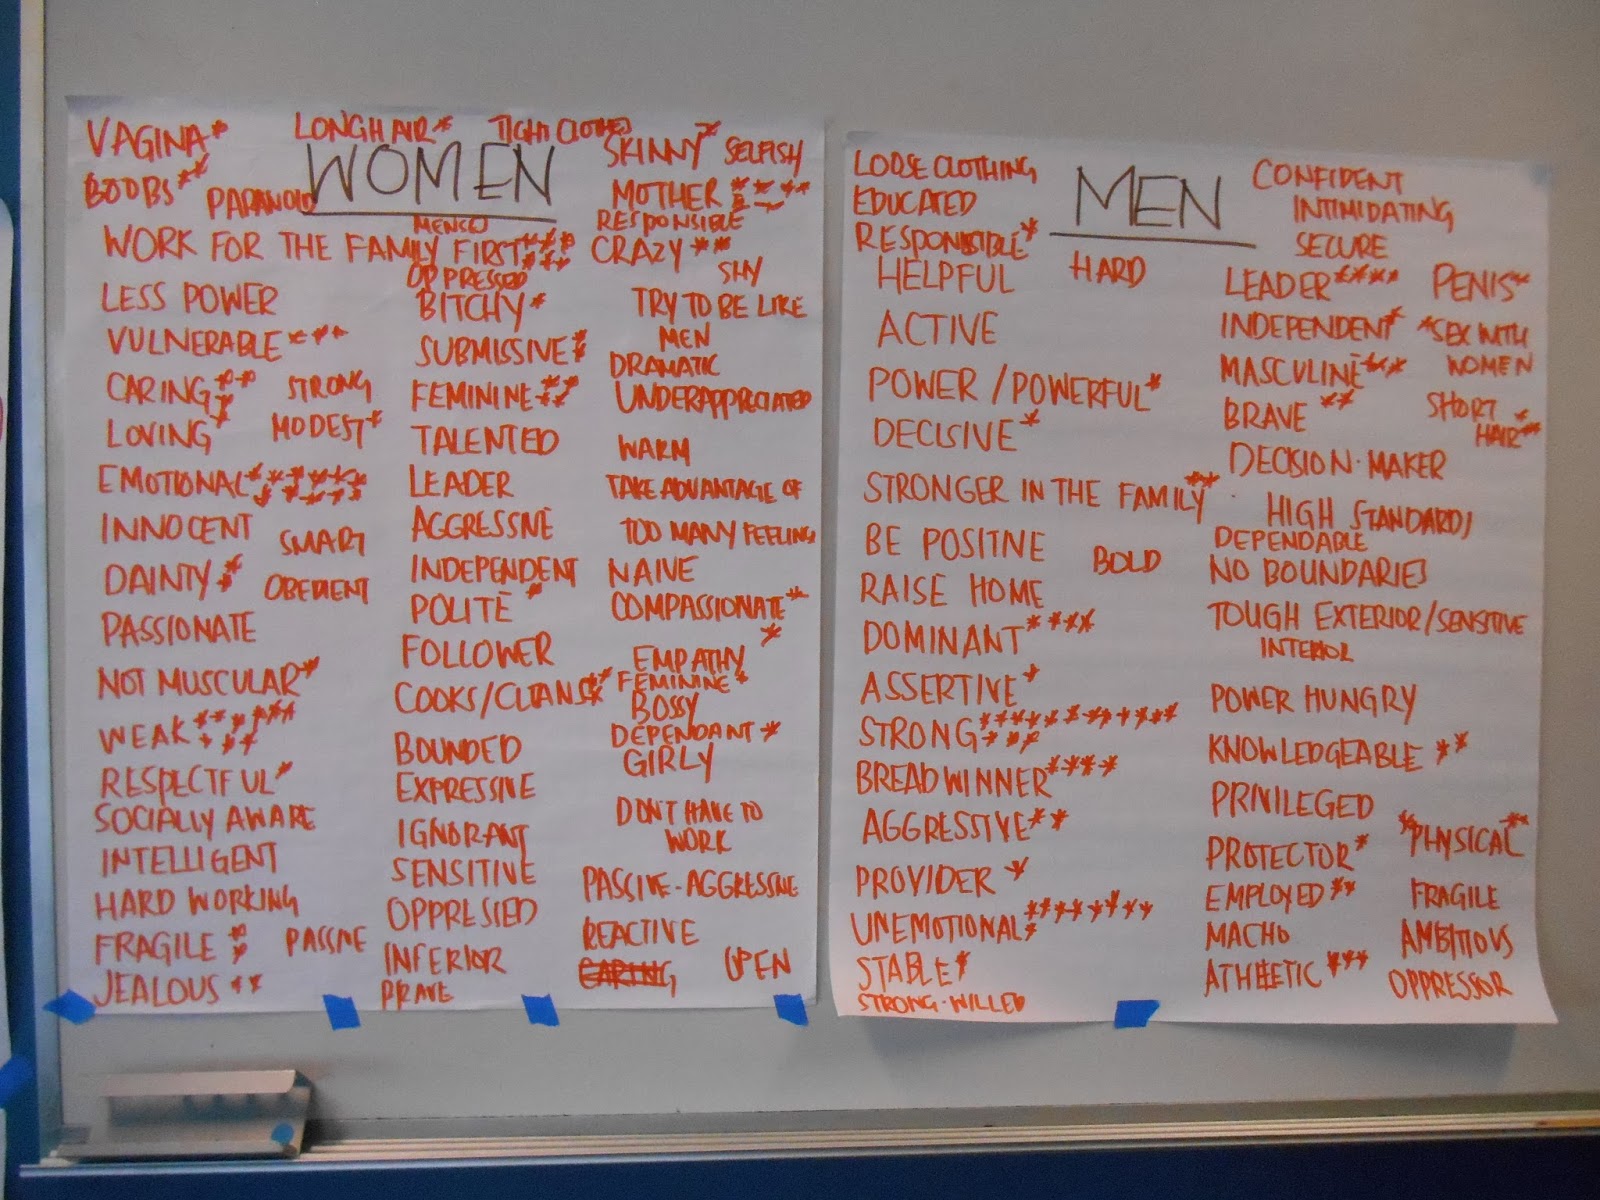 VAGINA*
LONGHAIR*
TIGHT CLOTHES
WOMEN
BOOBS**
PARANOID
SKINNY*
SELFISH
MOTHER
RESPONSIBLE
WORK FOR THE FAMILY FIRST
OPPRESSED
CRAZY**
SHY
LESS POWER
VULNERABLE***
CARING
STRONG
LOVING*
MODEST*
EMOTIONAL
INNOCENT
SMART
DAINTY
OBEDIENT
PASSIONATE
NOT MUSCULAR*
WEAK
RESPECTFUL*
SOCIALLY AWARE
INTELLIGENT
HARD WORKING
FRAGILE
PASSIVE
JEALOUS**
BITCHY*
SUBMISSIVE
FEMININE
TALENTED
LEADER
AGGRESSIVE
INDEPENDENT
POLITE*
FOLLOWER
COOKS/CLEANS
BOUNDED
EXPRESSIVE
IGNORANT
SENSITIVE
OPPRESSED
INFERIOR
TRY TO BE LIKE
MEN
DRAMATIC
UNDERAPPRECIATED
WARM
TAKE ADVANTAGE OF
TOO MANY FEELING
NAIVE
COMPASSIONATE*
EMPATHY*
FEMININE*
BOSSY
DEPENDANT*
GIRLY
DON'T HAVE TO
WORK
PASSIVE-AGGRESSIVE
REACTIVE
CARING
OPEN
LOOSE CLOTHING
EDUCATED
RESPONSIBLE*
MEN
CONFIDENT
INTIMIDATING
SECURE
HELPFUL
HARD
ACTIVE
POWER/POWERFUL*
DECISIVE*
STRONGER IN THE FAMILY**
BE POSITIVE
BOLD
RAISE HOME
DOMINANT****
ASSERTIVE*
STRONG
BREADWINNER****
AGGRESSIVE**
PROVIDER*
UNEMOTIONAL
STABLE*
STRONG-WILLED
LEADER****
PENIS
INDEPENDENT*
*SEX WITH
WOMEN
MASCULINE***
BRAVE**
SHORT
HAIR
DECISION-MAKER
HIGH STANDARDS
DEPENDABLE
NO BOUNDARIES
TOUGH EXTERIOR/SENSITIVE
INTERIOR
POWER HUNGRY
KNOWLEDGEABLE**
PRIVILEGED
PROTECTOR*
PHYSICAL
EMPLOYED**
FRAGILE
MACHO
AMBITIOUS
ATHLETIC***
OPPRESSOR